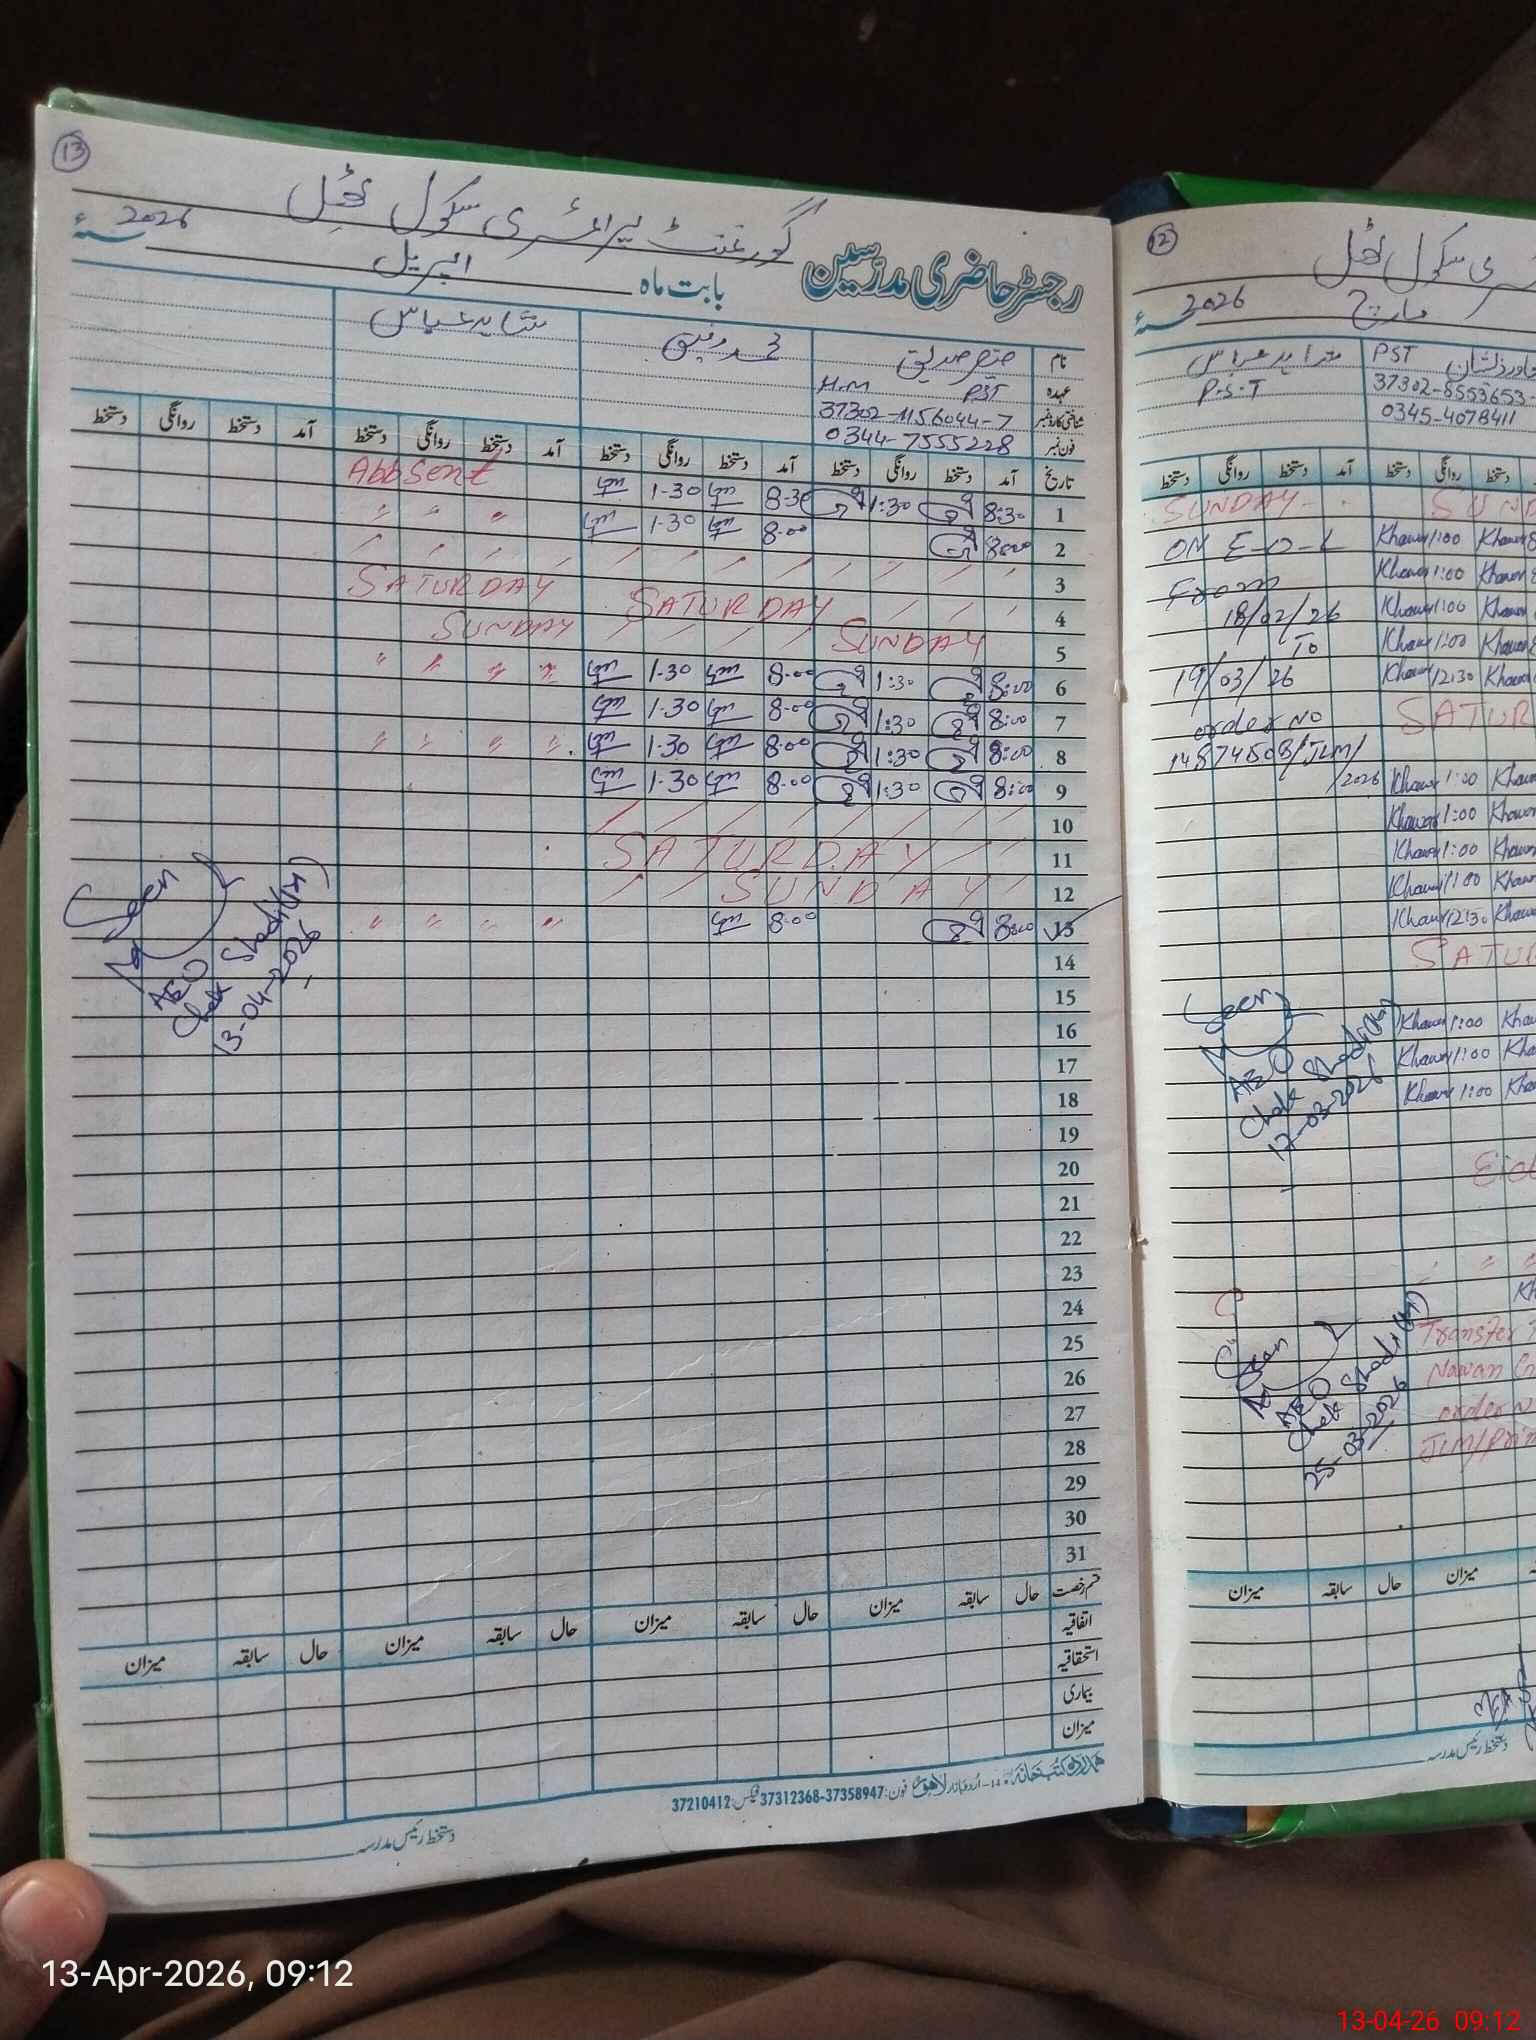 13
گورنمنٹ پرائمری سکول ٹھل
رجسٹر حاضری مدرّسین بابت ماہ اپریل 2026
نام
شاہد عباس
عہدہ H.M PST
شناختی کارڈ نمبر 37302-1156044-7
فون نمبر 0344-7555228
تاریخ آمد دستخط روانگی دستخط آمد دستخط روانگی دستخط آمد دستخط روانگی دستخط آمد دستخط روانگی دستخط
1 8:30 1:30 8-30 1-30 Abbsent
2 8:00 8-00 1-30 " " "
3
4 SATURDAY SATURDAY
5 SUNDAY SUNDAY
6 8:00 1:30 8-00 1-30 " " " "
7 8:00 1:30 8-00 1-30
8 8:00 1:30 8-00 1-30 " " " "
9 8:00 1:30 8-00 1-30
10
11 SATURDAY
12 SUNDAY
13 8:00 8-00 " " " "
Seen
AEO
Chak Shadi (M)
13-04-2026
14
15
16
17
18
19
20
21
22
23
24
25
26
27
28
29
30
31
قسم رخصت حال سابقہ میزان حال سابقہ میزان حال سابقہ میزان حال سابقہ میزان
اتفاقیہ
استحقاقیہ
بیماری
میزان
ہمدرد کتب خانہ 14-اردو بازار لاہور فون: 37358947-37312368 فیکس: 37210412
دستخط رئیس مدرسہ
12
سکول ٹھل
مارچ 2026
PST
P.S.T
37302-8553653-
0345-4078411
دستخط روانگی دستخط آمد دستخط روانگی دستخط
SUNDAY
ON E-O-L Khawar 1:00 Khawar
From Khawar 1:00 Khawar
18/02/26 Khawar 1:00 Khawar
To Khawar 1:00 Khawar
19/03/26 Khawar 12:30 Khawar
order No SATUR
/JLM/
2026 Khawar 1:00 Khawar
Khawar 1:00 Khawar
Khawar 1:00 Khawar
Khawar 1:00 Khawar
Khawar 12:30 Khawar
SATUR
Seen
AEO
Chak Shadi (M)
17-03-2026
Khawar 1:00 Khawar
Khawar 1:00 Khawar
Khawar 1:00 Khawar
Eid
Seen
AEO
Chak Shadi (M)
25-03-2026
Transfer
Nawan
order N
JLM/Prim
میزان سابقہ حال میزان
دستخط رئیس مدرسہ
13-Apr-2026, 09:12
13-04-26 09:12